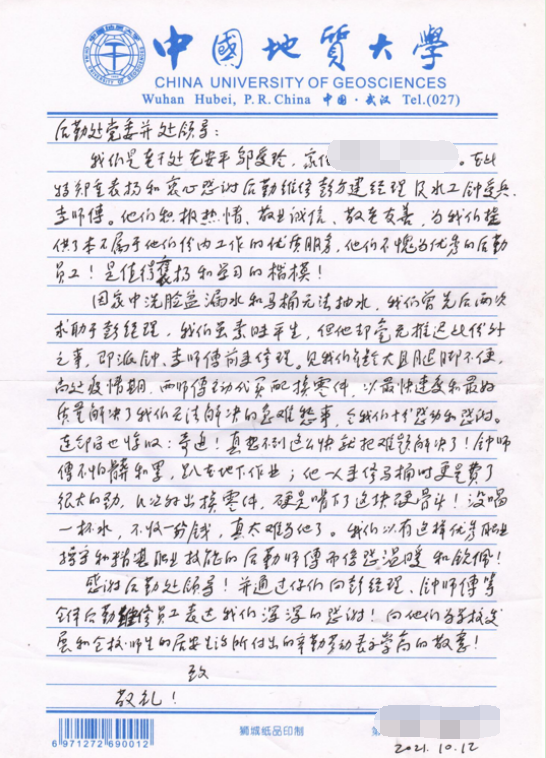 中國地質大學
CHINA UNIVERSITY OF GEOSCIENCES
Wuhan Hubei, P.R.China 中国·武汉 Tel.(027)
后勤处党委并处领导：
我们是老干处左安平 邬爱玲，家住 。在此
特郑重表扬和衷心感谢后勤维修彭方建经理及水工钟爱兵、
李师傅。他们积极热情、敬业诚信、敬老友善，为我们提
供了本不属于他们份内工作的优质服务，他们不愧为优秀的后勤
员工！是值得褒扬和学习的楷模！
因家中洗脸盆漏水和马桶无法抽水，我们曾先后两次
求助于彭经理，我们虽素昧平生，但他却毫无推迟此份外
之事，即派钟、李师傅前来修理。见我们年龄大且腿脚不便，
尚处疫情期，两师傅主动代买配换零件，以最快速度和最好
质量解决了我们无法解决的急难愁事，令我们十分感动和感谢。
连邻居也惊叹：奇迹！真想不到这么快就把难题解决了！钟师
傅不怕脏和累，趴在地下作业；他一人来修马桶时更是费了
很大的劲，几次外出换零件，硬是啃下了这块硬骨头！没喝
一杯水，不收一分钱，真太难为他了。我们以有这样优秀职业
操守和精湛职业技能的后勤师傅而倍感温暖和钦佩！
感谢后勤处领导！并通过你们向彭经理、钟师傅等
全体后勤维修员工表达我们深深的感谢！向他们为学校发
展和全校师生的居安生活所付出的辛勤劳动表示崇高的敬意！
致
敬礼！
6 971272 690012
狮城纸品印制
第
2021.10.12